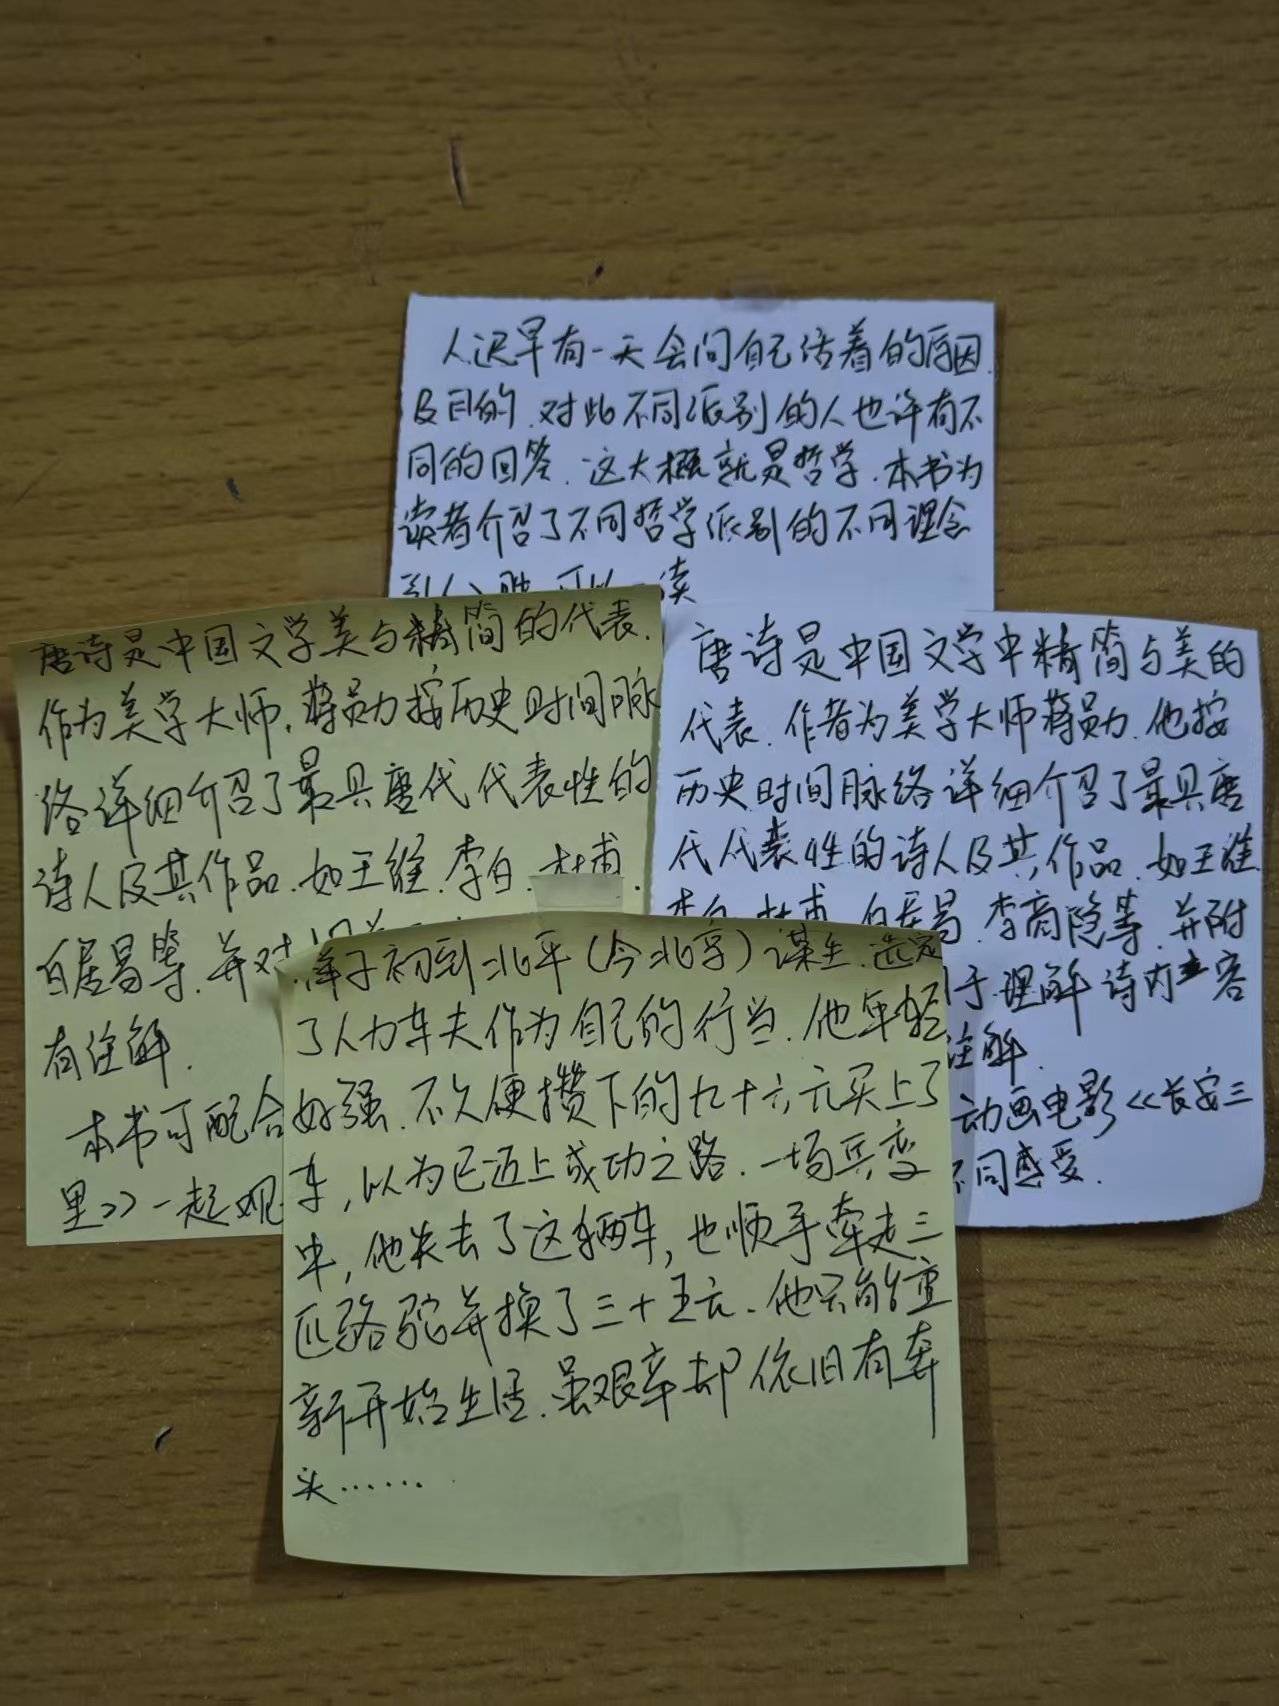 人迟早有一天会问自己活着的原因
及目的.对此不同派别的人也许有不
同的回答.这大概就是哲学.本书为
读者介绍了不同哲学派别的不同理念
唐诗是中国文学美与精简的代表.
作为美学大师,蒋勋按历史时间脉
络详细介绍了最具唐代代表性的
诗人及其作品.如王维.李白.杜甫.
白居易等.并对
有注解.
本书可配合
里>>一起观
唐诗是中国文学中精简与美的
代表.作者为美学大师蒋勋.他按
历史时间脉络详细介绍了最具唐
代代表性的诗人及其作品.如王维
李白.杜甫.白居易.李商隐等.并附
于理解诗内容
注解.
动画电影<<长安三
不同感受.
祥子初到北平(今北京)谋生.选定
了人力车夫作为自己的行当.他年轻
好强.不久便攒下的九十六元买上了
车,以为已迈上成功之路.一场兵变
中,他失去了这辆车,也顺手牵走三
匹骆驼并换了三十五元.他只能重
新开始生活.虽艰辛却依旧有奔
头......